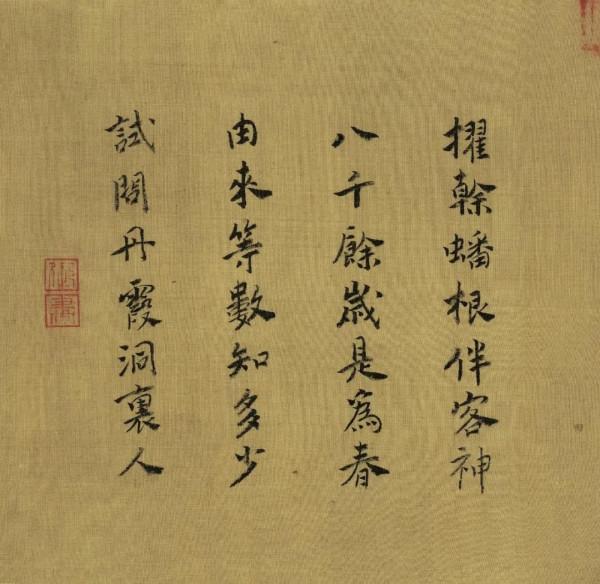 擢榦蟠根伴客神
八千餘歲是為春
由來等數知多少
試問丹霞洞裏人
御書